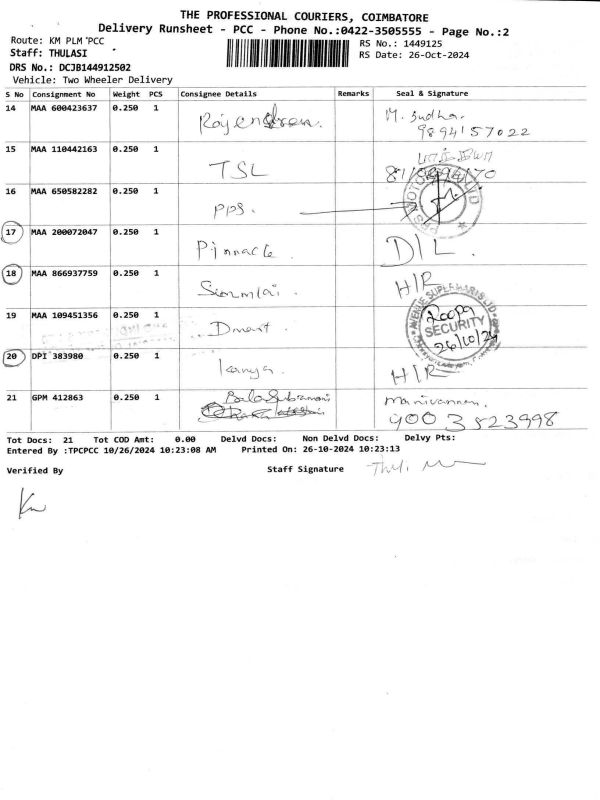 THE PROFESSIONAL COURIERS, COIMBATORE
Delivery Runsheet - PCC - Phone No.:0422-3505555 - Page No.:2
Route: KM PLM PCC
RS No.: 1449125
Staff: THULASI
RS Date: 26-Oct-2024
DRS No.: DCJB144912502
Vehicle: Two Wheeler Delivery
S No Consignment No Weight PCS Consignee Details Remarks Seal & Signature
14 MAA 600423637 0.250 1 Rajendran. M. Sudha.
9894157022
15 MAA 110442163 0.250 1 TSL
16 MAA 650582282 0.250 1 PPS.
17 MAA 200072047 0.250 1 Pinnacle D/L.
18 MAA 866937759 0.250 1 H/R
19 MAA 109451356 0.250 1 Dmart. AVENUE SUPERMARTS LTD
Roopa
SECURITY
26/10/24
20 DPI 383980 0.250 1 Kanya. H/R
21 GPM 412863 0.250 1 Bala Subramani Manivannan.
9003523998
Tot Docs: 21 Tot COD Amt: 0.00 Delvd Docs: Non Delvd Docs: Delvy Pts:
Entered By :TPCPCC 10/26/2024 10:23:08 AM Printed On: 26-10-2024 10:23:13
Verified By Staff Signature